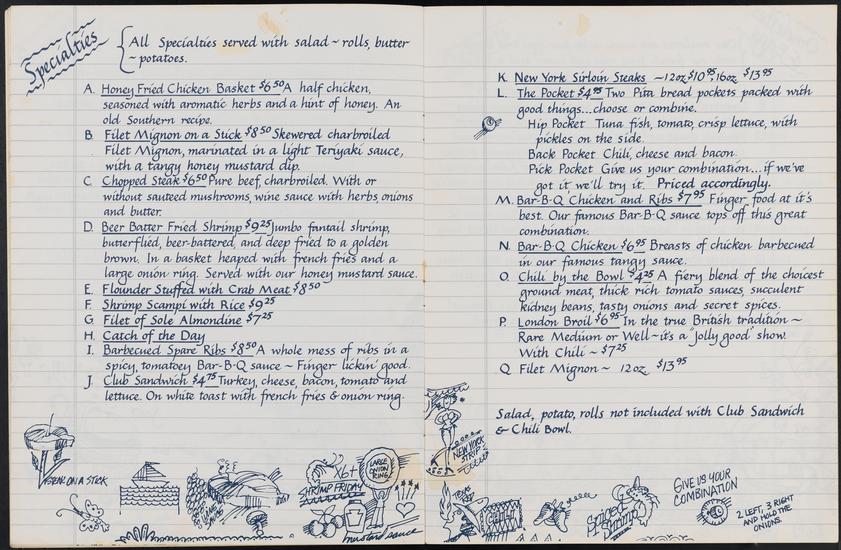 Specialties
All Specialties served with salad ~ rolls, butter
~ potatoes.
A. Honey Fried Chicken Basket $6.50 A half chicken,
seasoned with aromatic herbs and a hint of honey. An
old Southern recipe.
B. Filet Mignon on a Stick $8.50 Skewered charbroiled
Filet Mignon, marinated in a light Teriyaki sauce,
with a tangy honey mustard dip.
C. Chopped Steak $6.50 Pure beef, charbroiled. With or
without sauteed mushrooms, wine sauce with herbs onions
and butter.
D. Beer Batter Fried Shrimp $9.25 Jumbo fantail shrimp,
butterflied, beer-battered, and deep fried to a golden
brown. In a basket heaped with french fries and a
large onion ring. Served with our honey mustard sauce.
E. Flounder Stuffed with Crab Meat $8.50
F. Shrimp Scampi with Rice $9.25
G. Filet of Sole Almondine $7.25
H. Catch of the Day
I. Barbecued Spare Ribs $8.50 A whole mess of ribs in a
spicy, tomatoey Bar-B-Q sauce ~ Finger lickin' good.
J. Club Sandwich $4.75 Turkey, cheese, bacon, tomato and
lettuce. On white toast with french fries & onion ring.
ON A STICK
X6+
LARGE
ONION
RING
SHRIMP FRIDAY
mustard sauce
K. New York Sirloin Steaks ~ 12oz $10.95; 16oz $13.95
L. The Pocket $4.95 Two Pita bread pockets packed with
good things... choose or combine.
Hip Pocket Tuna fish, tomato, crisp lettuce, with
pickles on the side.
Back Pocket Chili, cheese and bacon.
Pick Pocket Give us your combination... if we've
got it we'll try it. Priced accordingly.
M. Bar-B-Q Chicken and Ribs $7.95 Finger food at it's
best. Our famous Bar-B-Q sauce tops off this great
combination.
N. Bar-B-Q Chicken $6.95 Breasts of chicken barbecued
in our famous tangy sauce.
O. Chili by the Bowl $4.25 A fiery blend of the choicest
ground meat, thick rich tomato sauces, succulent
kidney beans, tasty onions and secret spices.
P. London Broil $6.95 In the true British tradition ~
Rare Medium or Well ~ it's a "jolly good" show.
With Chili ~ $7.25
Q. Filet Mignon ~ 12oz $13.95
Salad, potato, rolls not included with Club Sandwich
& Chili Bowl.
NEW YORK
STRIP
Spiced
Shrimp
GIVE US YOUR
COMBINATION
2 LEFT, 3 RIGHT
AND HOLD THE
ONIONS.